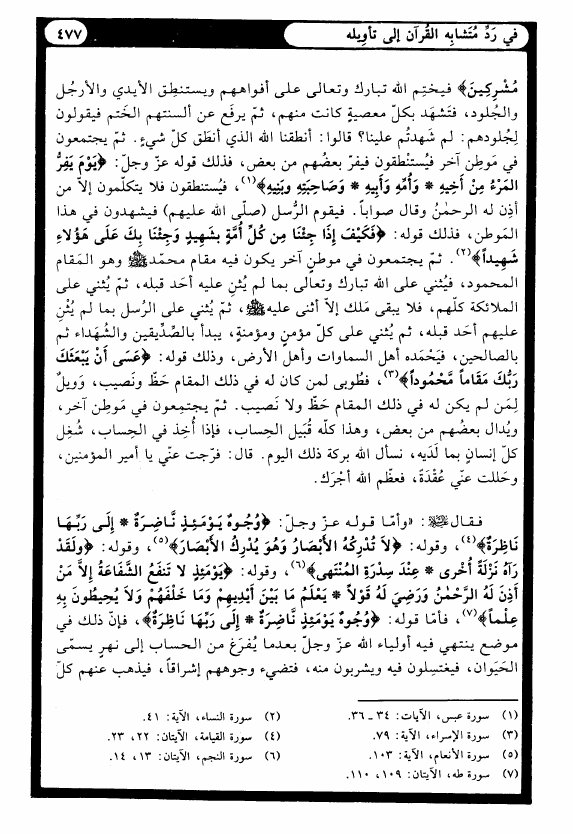 في رَدِّ مُتَشابِه القُرآن إلى تأوِيله
٤٧٧
مُشْرِكِينَ﴾ فيختِم الله تبارك وتعالى على أفواههم ويستنطِق الأيدي والأرجُل
والجُلود، فتَشهَد بكلّ معصيةٍ كانت منهم، ثمّ يرفَع عن ألسنتهم الخَتم فيقولون
لِجُلودهم: لم شَهدتُم علينا؟ قالوا: أنطقنا الله الذي أنطَق كلّ شيءٍ. ثمّ يجتمعون
في مَوطِن آخر فيُستنْطقون فيفرّ بعضُهم من بعض، فذلك قوله عزّ وجلّ: ﴿يَوْمَ يَفِرُّ
المَرْءُ مِنْ أَخِيهِ * وَأُمِّهِ وَأَبِيهِ * وَصَاحِبَتِهِ وبَنِيهِ﴾(١)، فيُستنطقون فلا يتكلّمون إلاّ من
أذِن له الرحمٰنُ وقال صواباً. فيقوم الرُّسل (صلّى الله عليهم) فيشهدون في هذا
المَوطن، فذلك قوله: ﴿فَكَيْفَ إِذَا جِئْنَا مِن كُلِّ أُمَّةٍ بِشَهِيدٍ وَجِئْنَا بِكَ عَلَى هَؤُلاءِ
شَهِيداً﴾(٢). ثمّ يجتمعون في موطنٍ آخر يكون فيه مقام محمّدﷺ وهو المَقام
المحمود، فيُثني على الله تبارك وتعالى بما لم يُثنِ عليه أحَد قبله، ثمّ يُثني على
الملائكة كلّهم، فلا يبقى مَلك إلاّ أثنى عليهﷺ، ثمّ يُثني على الرُسل بما لم يُثْنِ
عليهم أحَد قبله، ثم يُثني على كلّ مؤمنٍ ومؤمنةٍ، يبدأ بالصِّدِّيقين والشُهداء ثم
بالصالحين، فيَحْمَده أهل السماوات وأهل الأرض، وذلك قوله: ﴿عَسَى أَنْ يَبْعَثَكَ
رَبُّكَ مَقَاماً مَّحْمُوداً﴾(٣)، فطُوبى لمن كان له في ذلك المقام حَظّ ونَصيب، وَوَيلٌ
لِمَن لم يكن له في ذلك المقام حَظّ ولا نَصيب. ثمّ يجتمعون في مَوطِن آخر،
ويُدال بعضُهم من بعض، وهذا كلّه قُبَيل الحِساب، فإذا أُخِذ في الحِساب، شُغِل
كلّ إنسانٍ بما لَدَيه، نسأل الله بركة ذلك اليوم. قال: فرّجت عنّي يا أمير المؤمنين،
وحَللت عنّي عُقْدَةً، فعظّم الله أجْرَك.
فقالﷺ: «وأمّا قوله عزّ وجلّ: ﴿وُجُوهٌ يَوْمَئِذٍ نَّاضِرَةٌ * إِلَى رَبِّهَا
نَاظِرَةٌ﴾(٤)، وقوله: ﴿لاَ تُدْرِكُهُ الأَبْصَارُ وَهُوَ يُدْرِكُ الأَبْصَارَ﴾(٥)، وقوله: ﴿ولَقَدْ
رَآهُ نَزْلَةً أُخْرى * عِنْدَ سِدْرَةِ المُنْتَهى﴾(٦)، وقوله: ﴿يَوْمَئِذٍ لا تَنفَعُ الشَّفَاعَةُ إِلاَّ مَنْ
أَذِنَ لَهُ الرَّحْمٰنُ وَرَضِيَ لَهُ قَوْلاً * يَعْلَمُ مَا بَيْنَ أَيْدِيهِمْ وَمَا خَلْفَهُمْ وَلاَ يُحِيطُونَ بِهِ
عِلْماً﴾(٧)، فأمّا قوله: ﴿وُجُوهٌ يَوْمَئِذٍ نَّاضِرَةٌ * إِلَى رَبِّهَا نَاظِرَةٌ﴾، فإنّ ذلك في
موضع ينتهي فيه أولياء الله عزّ وجلّ بعدما يُفرَغ من الحساب إلى نهرٍ يسمّى
الحَيَوان، فيغتسِلون فيه ويشربون منه، فتضيء وجوههم إشراقاً، فيذهب عنهم كلّ
(١) سورة عبس، الآيات: ٣٤ ـ ٣٦.
(٢) سورة النساء، الآية: ٤١.
(٣) سورة الإسراء، الآية: ٧٩.
(٤) سورة القيامة، الآيتان: ٢٢، ٢٣.
(٥) سورة الأنعام، الآية: ١٠٣.
(٦) سورة النجم، الآيتان: ١٣، ١٤.
(٧) سورة طه، الآيتان: ١٠٩، ١١٠.